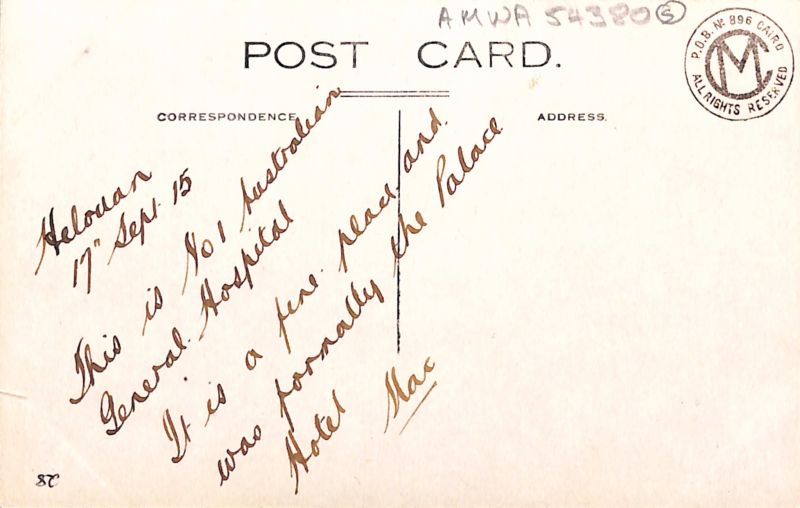 AMWA 54380 5
POST CARD.
P.O.B. No 896 CAIRO
CM
ALL RIGHTS RESERVED
CORRESPONDENCE
ADDRESS.
Helouan
17" Sept 15
This is No 1 Australian
General Hospital
It is a fine place and
was formally the Palace
Hotel Mac